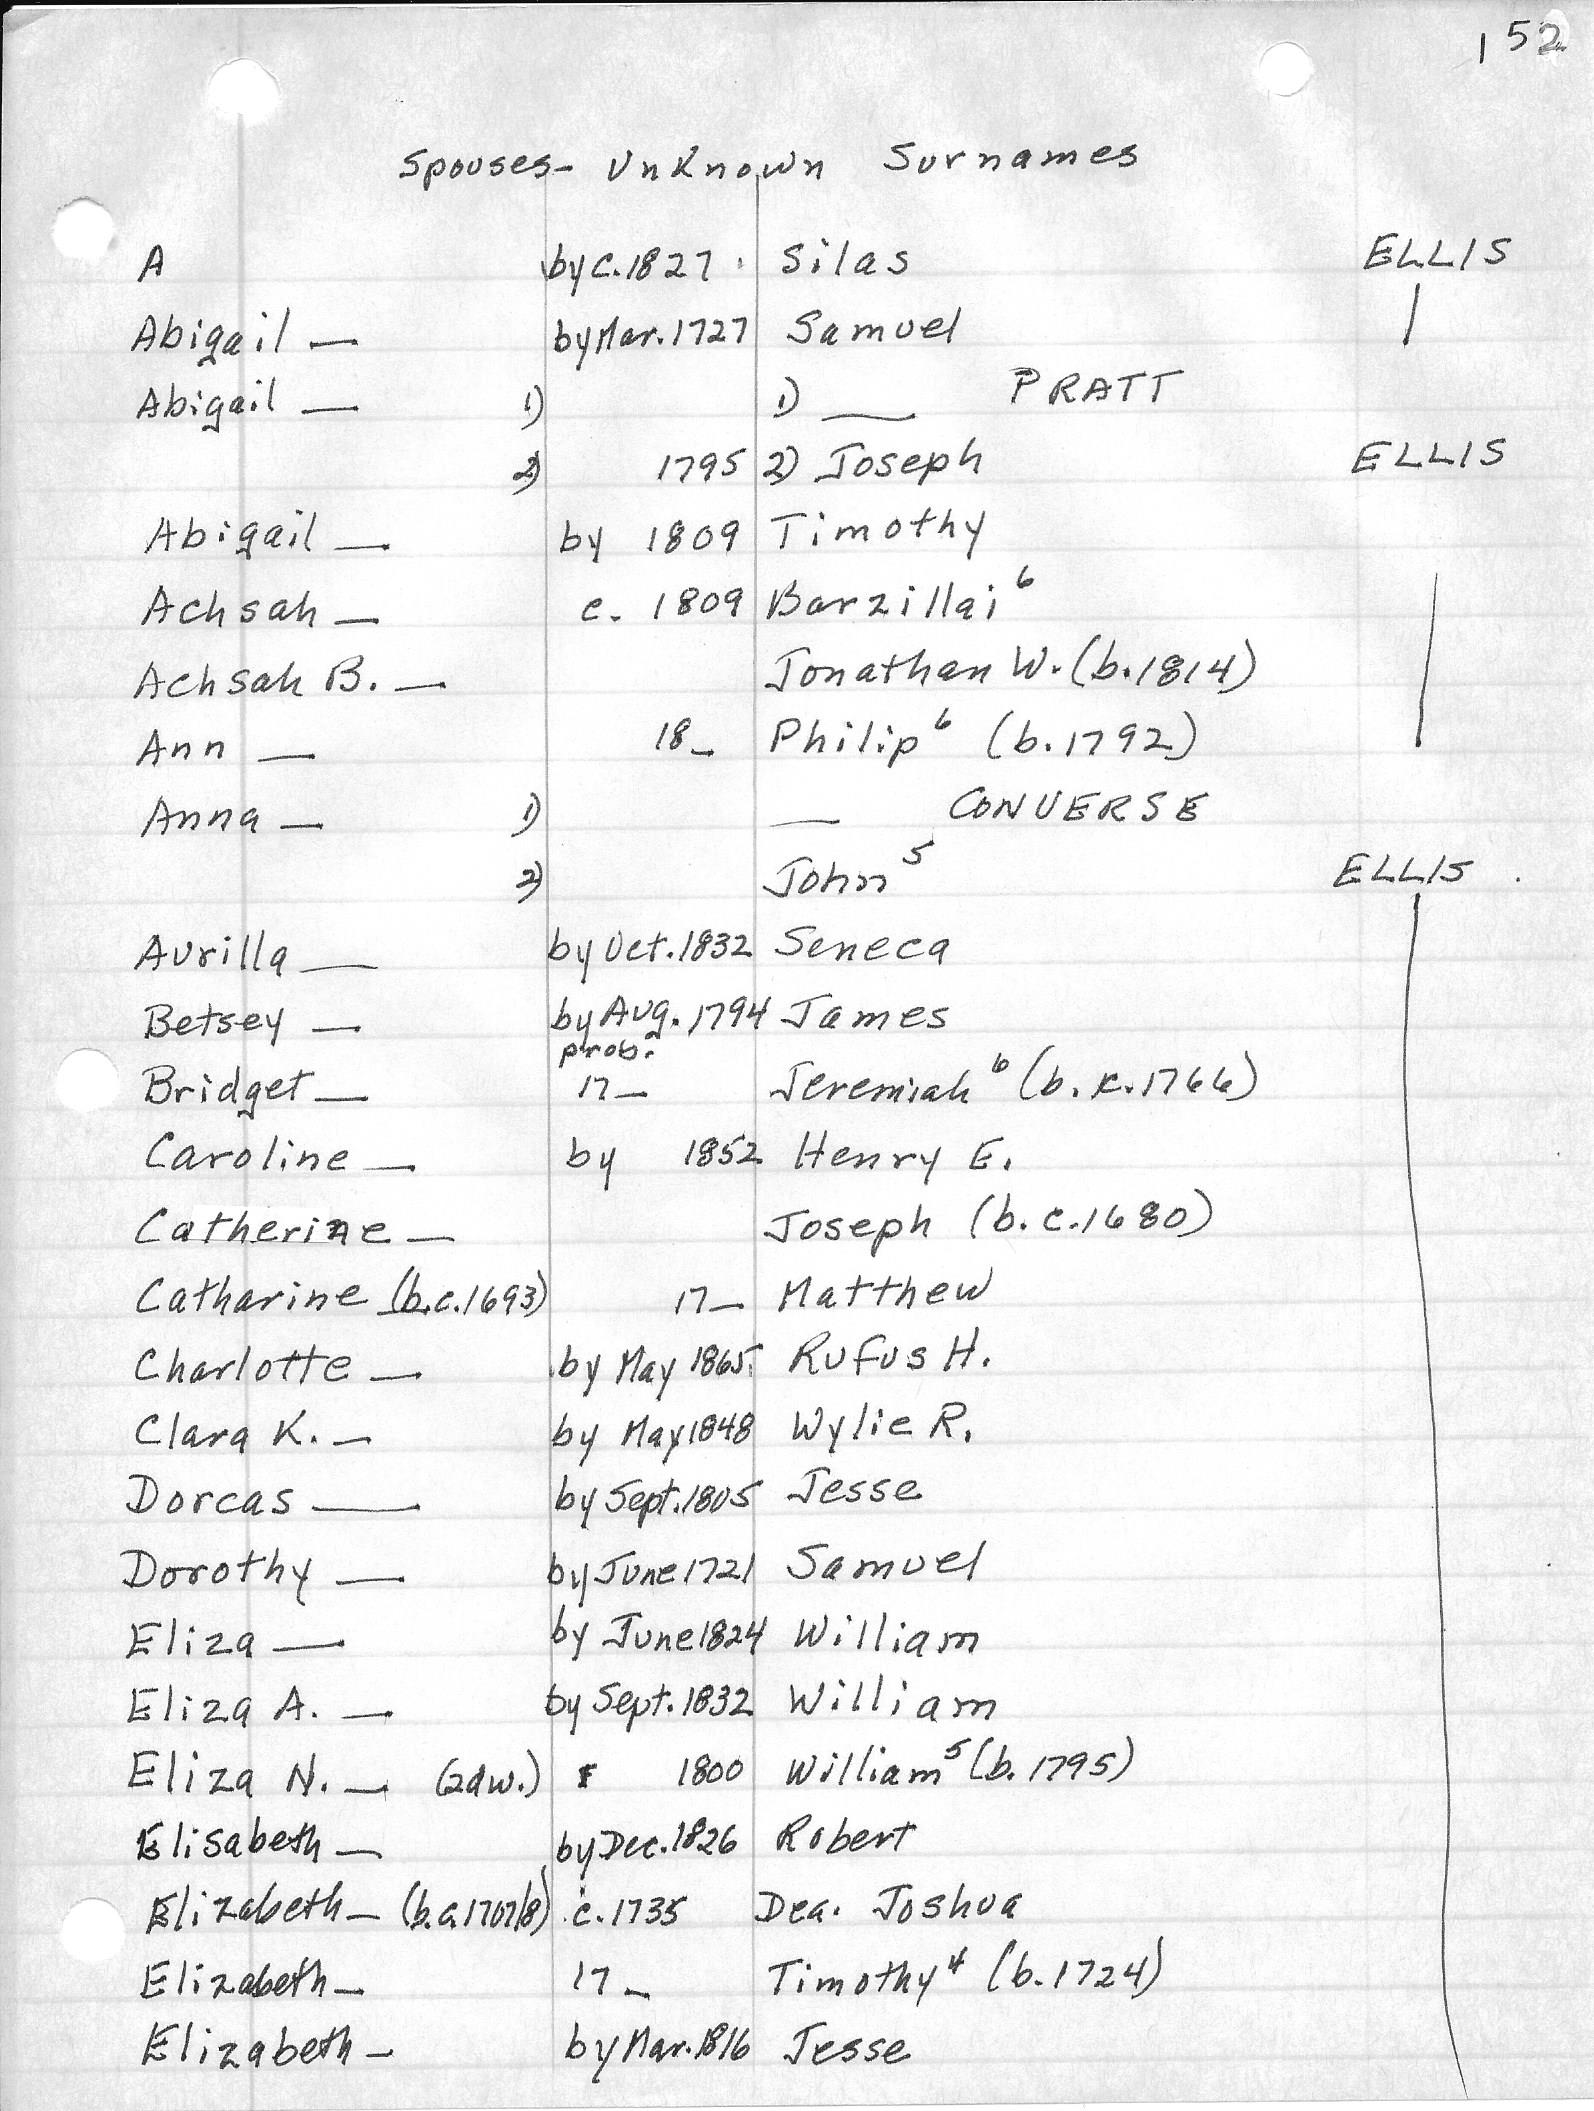 152
Spouses - Unknown Surnames
A by c. 1827 Silas ELLIS
Abigail — by Mar. 1727 Samuel
Abigail — 1) 1) — PRATT
2) 1795 2) Joseph ELLIS
Abigail — by 1809 Timothy
Achsah — c. 1809 Barzillai⁶
Achsah B. — Jonathan W. (b. 1814)
Ann — 18_ Philip⁶ (b. 1792)
Anna — 1) — CONVERSE
2) John⁵ ELLIS
Aurilla — by Oct. 1832 Seneca
Betsey — by Aug. 1794 James
prob.
Bridget — 17_ Jeremiah⁶ (b. c. 1766)
Caroline — by 1852 Henry E.
Catherine — Joseph (b. c. 1680)
Catharine (b. c. 1693) 17_ Matthew
Charlotte — by May 1865 Rufus H.
Clara K. — by May 1848 Wylie R.
Dorcas — by Sept. 1805 Jesse
Dorothy — by June 1721 Samuel
Eliza — by June 1824 William
Eliza A. — by Sept. 1832 William
Eliza N. — (2d w.) 1800 William⁵ (b. 1795)
Elisabeth — by Dec. 1826 Robert
Elizabeth — (b. c. 1707/8) c. 1735 Dea. Joshua
Elizabeth — 17_ Timothy⁴ (b. 1724)
Elizabeth — by Mar. 1816 Jesse